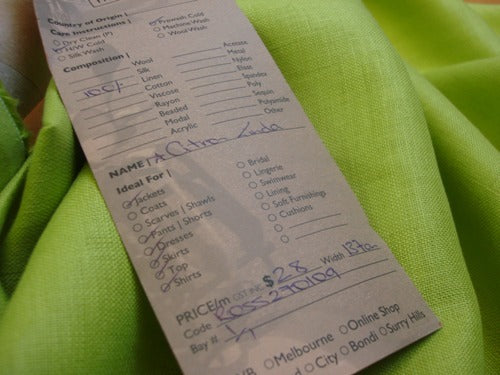 Country of Origin |
Care Instructions |
Dry Clean (P)
H/W Cold
Silk Wash
Prewash Cold
Machine Wash
Wool Wash
Composition |
Wool
Silk
100% Linen
Cotton
Viscose
Rayon
Beaded
Modal
Acrylic
Acetate
Metal
Nylon
Elast
Spandex
Poly
Sequin
Polyamide
Other
NAME | A Citron
Ideal For |
Jackets
Coats
Scarves | Shawls
Pants | Shorts
Dresses
Skirts
Top
Shirts
Bridal
Lingerie
Swimwear
Lining
Soft Furnishings
Cushions
PRICE/m GST INC $28 Width 137cm
Code 8055270109
Bay # 1/1
Melbourne Online Shop
City Bondi Surry Hills